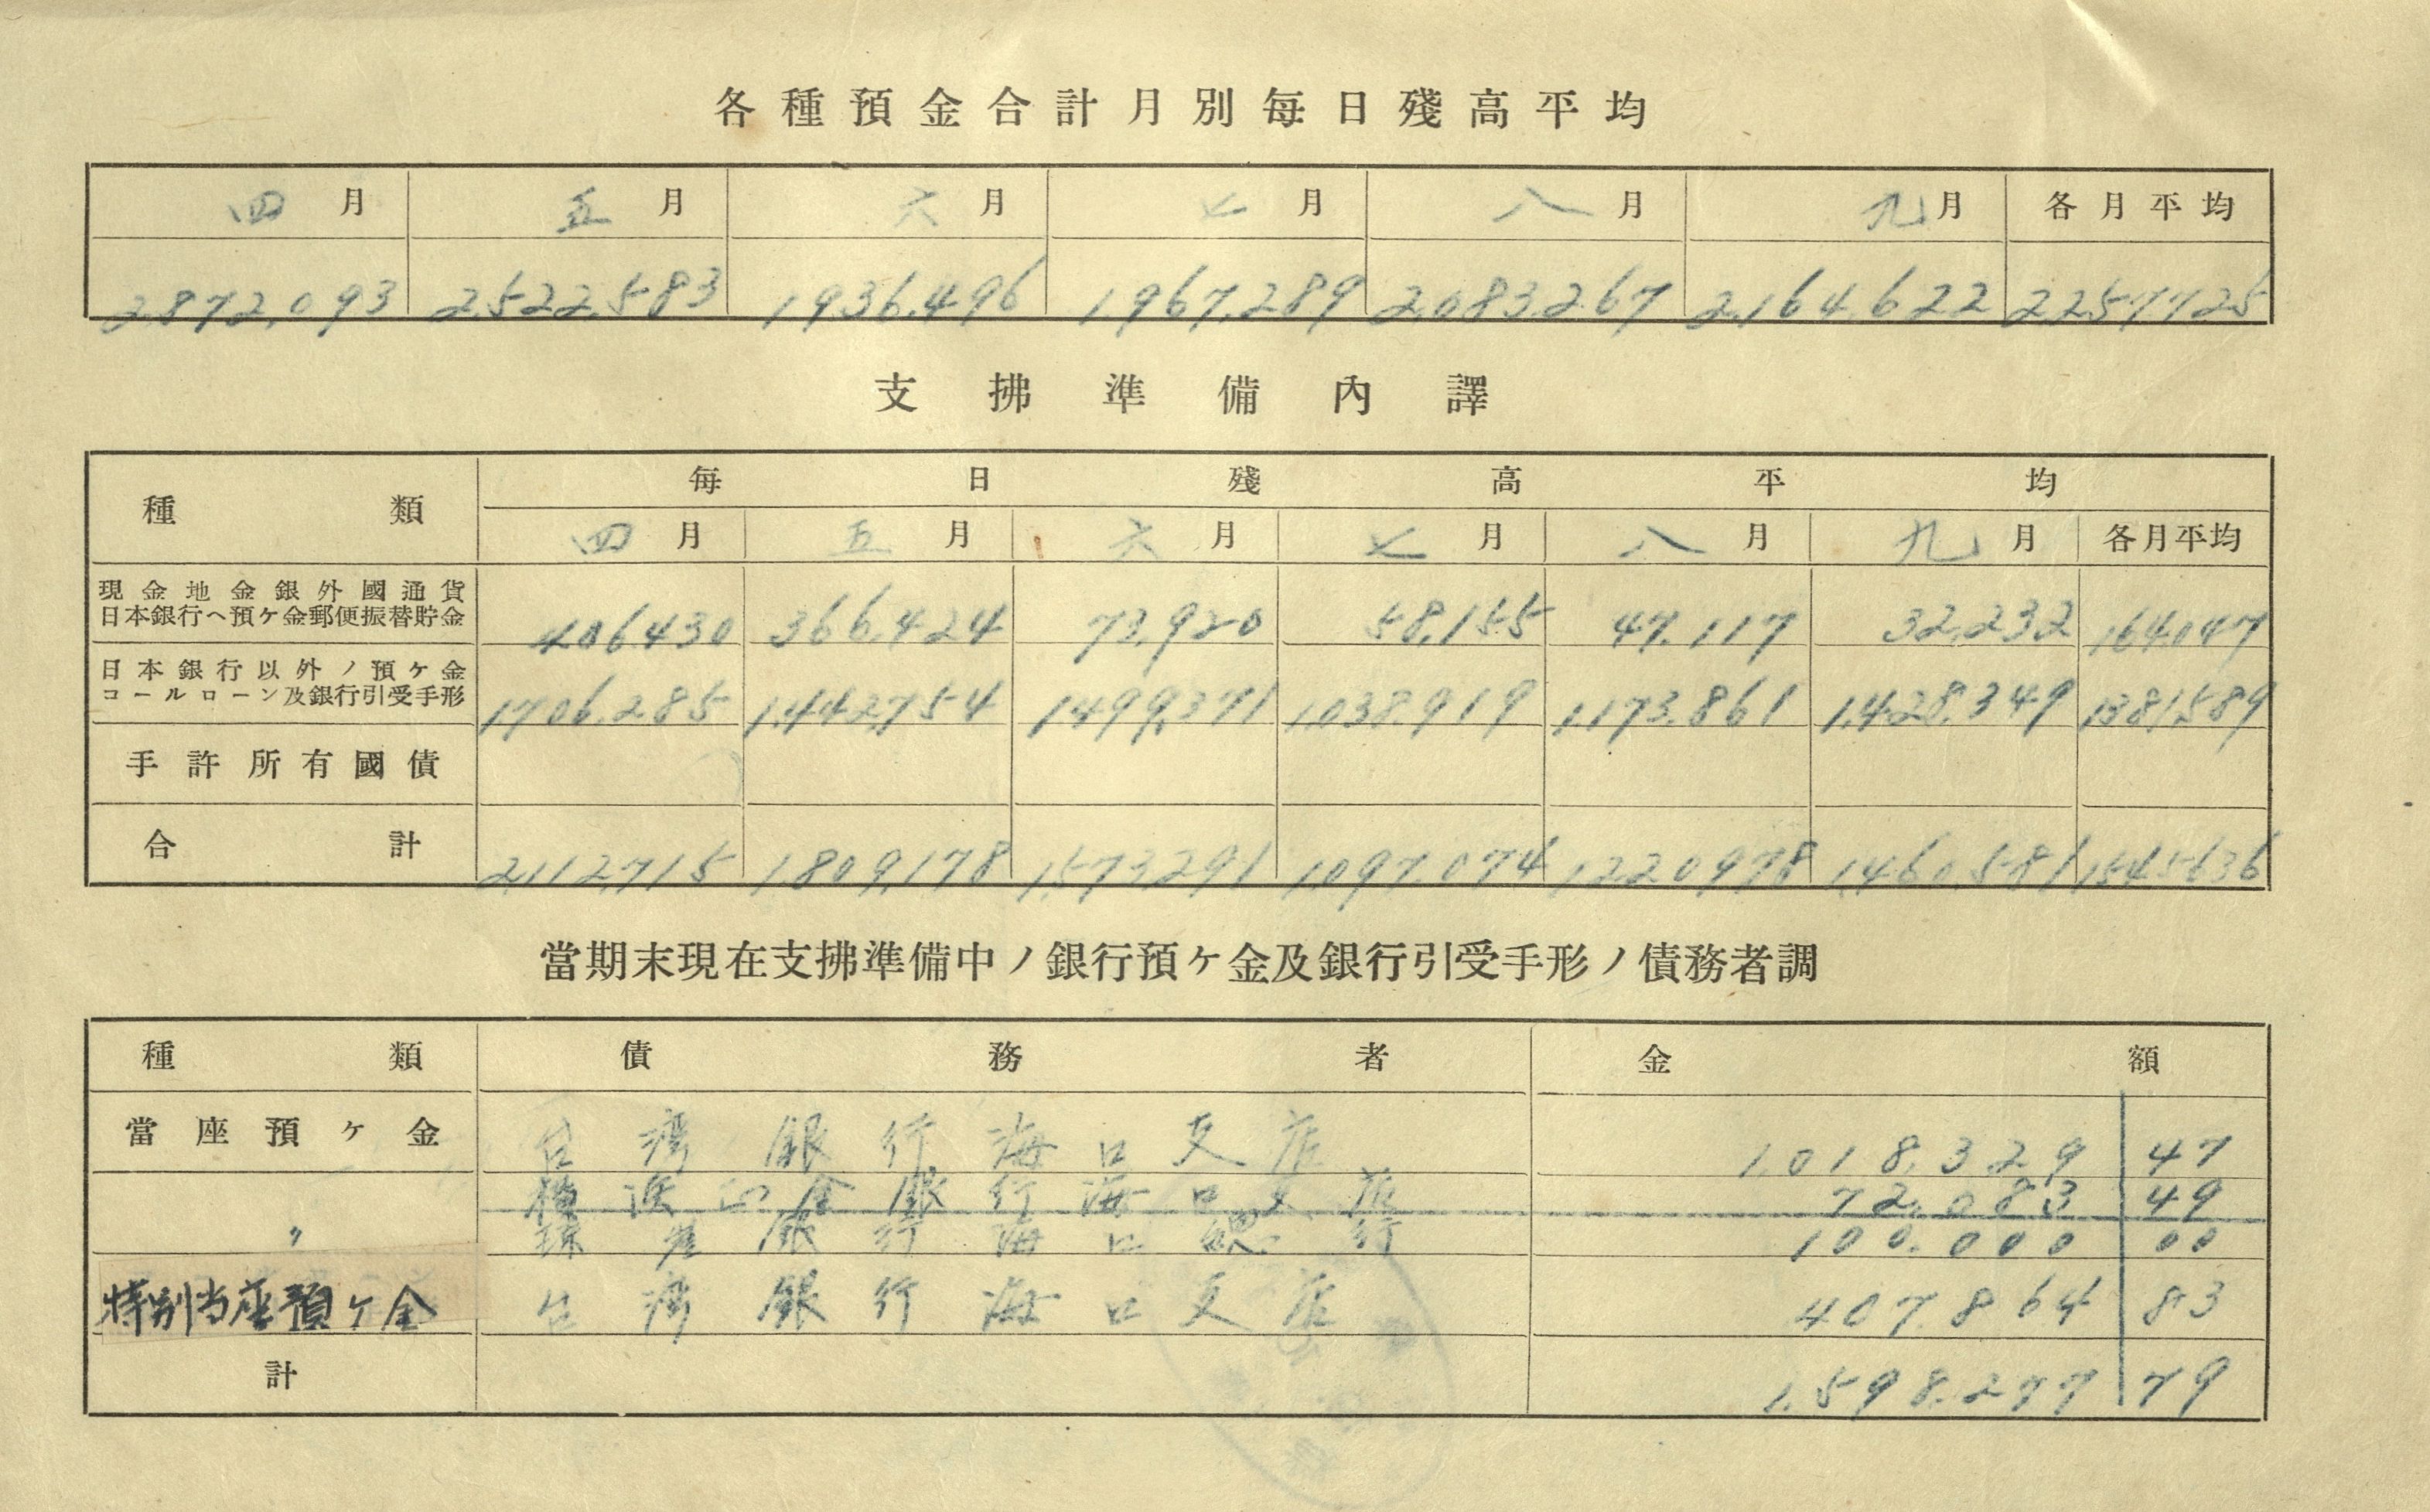 各種預金合計月別每日殘高平均
四月 五月 六月 七月 八月 九月 各月平均
2,872,093 2,522,583 1,936,496 1,967,289 2,083,267 2,164,622 2,257,725
支拂準備內譯
種類 每日殘高平均
四月 五月 六月 七月 八月 九月 各月平均
現金地金銀外國通貨
日本銀行ヘ預ケ金郵便振替貯金
406,430 366,424 73,920 58,155 47,117 32,232 164,047
日本銀行以外ノ預ケ金
コールローン及銀行引受手形
1,706,285 1,442,754 1,499,371 1,038,919 1,173,861 1,428,349 1,381,589
手許所有國債
合計 2,112,715 1,809,178 1,573,291 1,097,074 1,220,978 1,460,581 1,545,636
當期末現在支拂準備中ノ銀行預ケ金及銀行引受手形ノ債務者調
種類 債務者 金額
當座預ケ金 台湾銀行海口支店 1,018,329 47
橫浜正金銀行海口支店 72,083 49
〃 琼崖銀行海口總行 100,000 00
特別当座預ケ金 台湾銀行海口支店 407,864 83
計 1,598,277 79